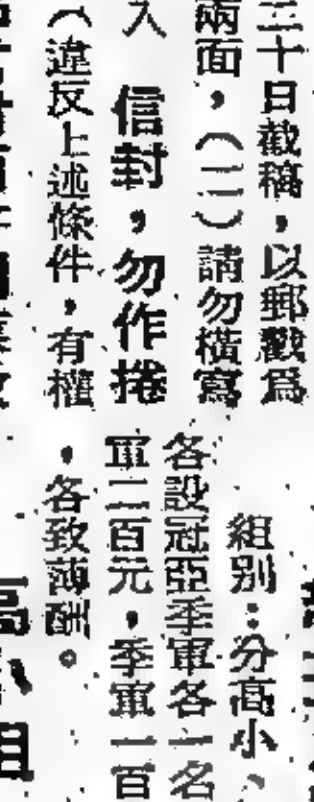 三十日截稿，以郵戳爲
兩面，（二）請勿橫寫
入 信封，勿作捲
（違反上述條件，有權
組別：分高小、
各設冠亞季軍各一名
軍二百元，季軍一百
，各致薄酬。